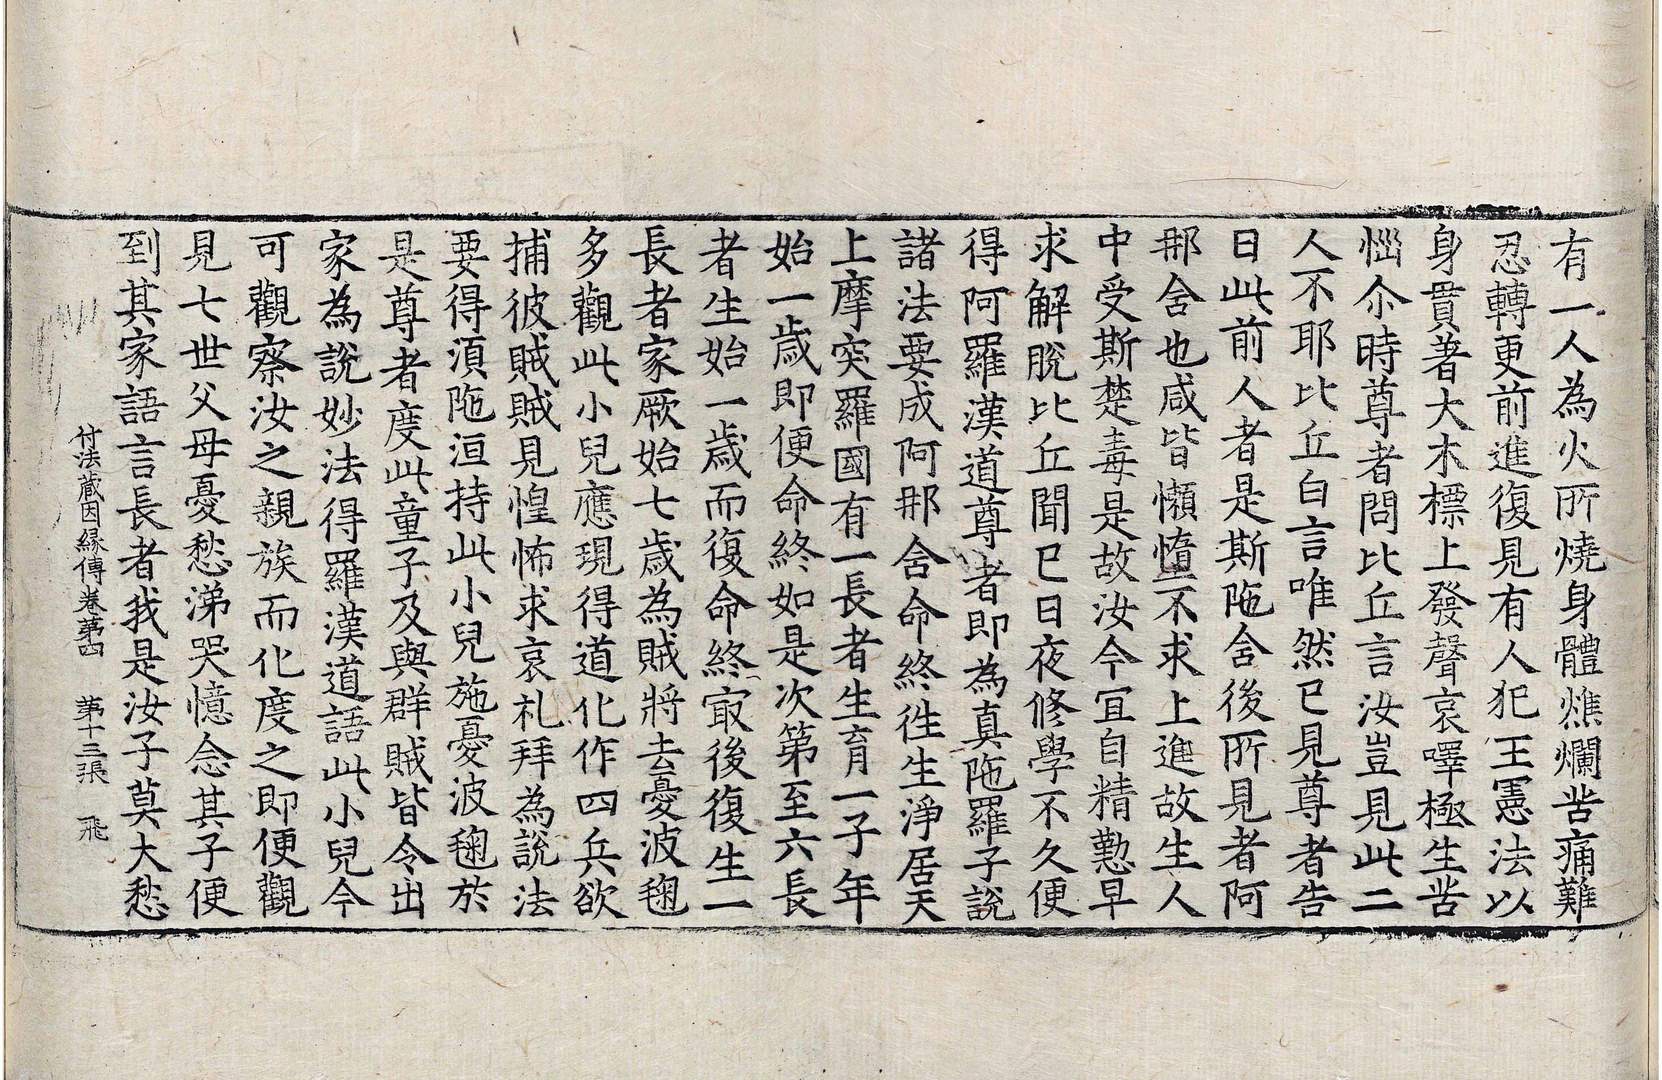 有一人為火所燒身體燋爛苦痛難
忍轉更前進復見有人犯王憲法以
身貫著大木標上發聲哀嘷極生苦
惱尒時尊者問比丘言汝豈見此二
人不耶比丘白言唯然已見尊者告
曰此前人者是斯陁舍後所見者阿
那舍也咸皆懶墮不求上進故生人
中受斯楚毒是故汝今宜自精懃早
求解脫比丘聞已日夜修學不久便
得阿羅漢道尊者即為真陁羅子說
諸法要成阿那舍命終徃生淨居天
上摩突羅國有一長者生育一子年
始一歲即便命終如是次第至六長
者生始一歲而復命終㝡後復生一
長者家厥始七歲為賊將去憂波毱
多觀此小兒應現得道化作四兵欲
捕彼賊賊見惶怖求哀礼拜為說法
要得湏陁洹持此小兒施憂波毱於
是尊者度此童子及與群賊皆令出
家為說妙法得羅漢道語此小兒今
可觀察汝之親族而化度之即便觀
見七世父母憂愁涕哭憶念其子便
到其家語言長者我是汝子莫大愁
付法藏因緣傳卷苐四　苐十三張　飛